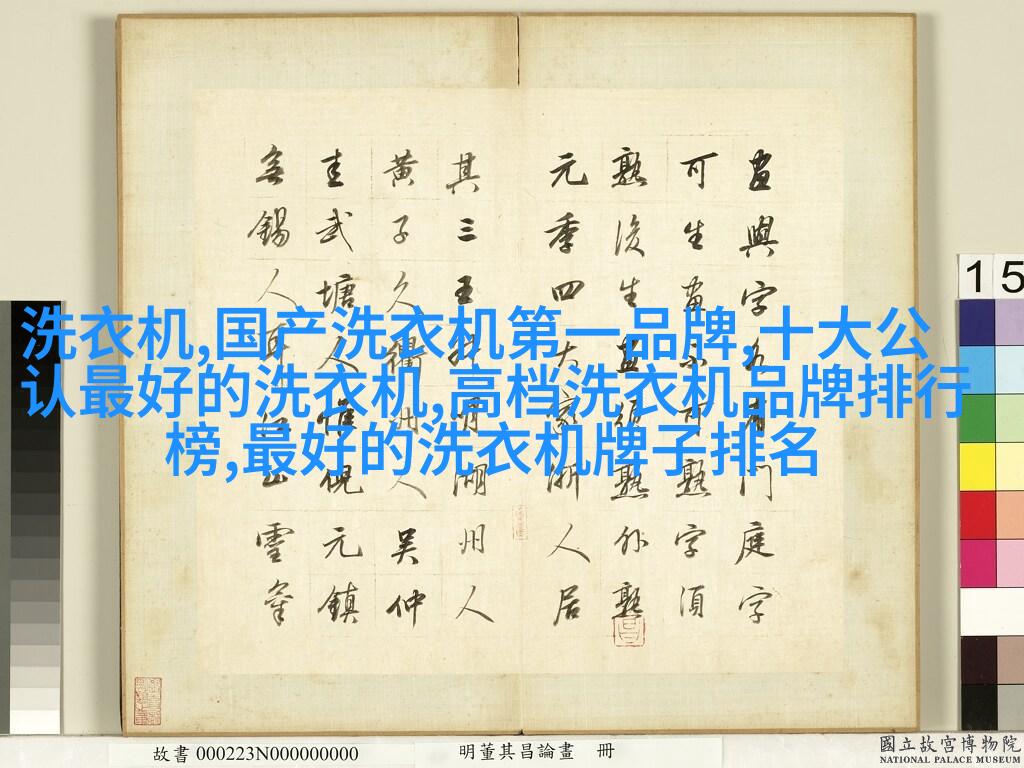 洗衣机,国产洗衣机第一品牌,十大公
认最好的洗衣机,高档洗衣机品牌排行
榜,最好的洗衣机牌子排名
畫與字各有門庭字
可生畫不可熟字須
熟後生畫須熟外熟
元季四大家浙人居
其三王叔明湖州人
黃子久衢州人吳仲
圭武塘人惟倪元鎮
無錫人耳江山靈氣
15
故書 000223N000000000
明董其昌論畫 冊
國立故宮博物院
NATIONAL PALACE MUSEUM